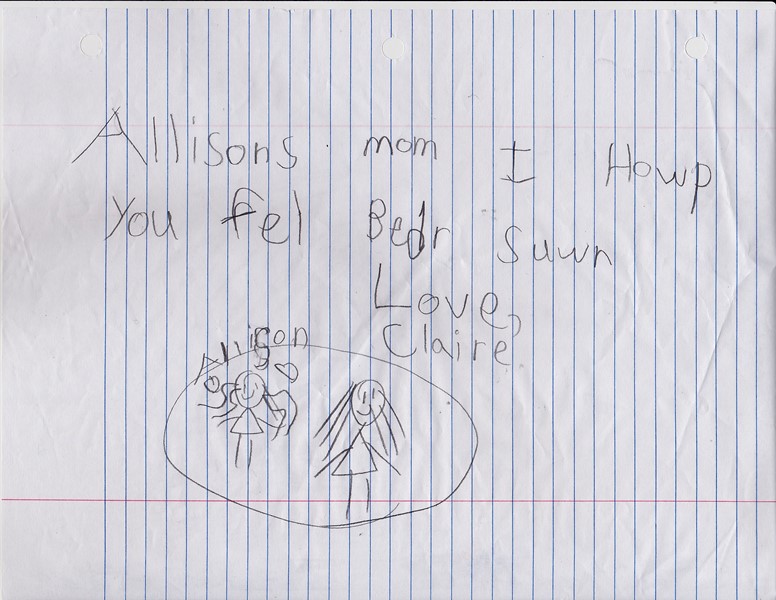 Allisons mom I Howp
You fel Bedr Suwn
Love,
Claire
Allison